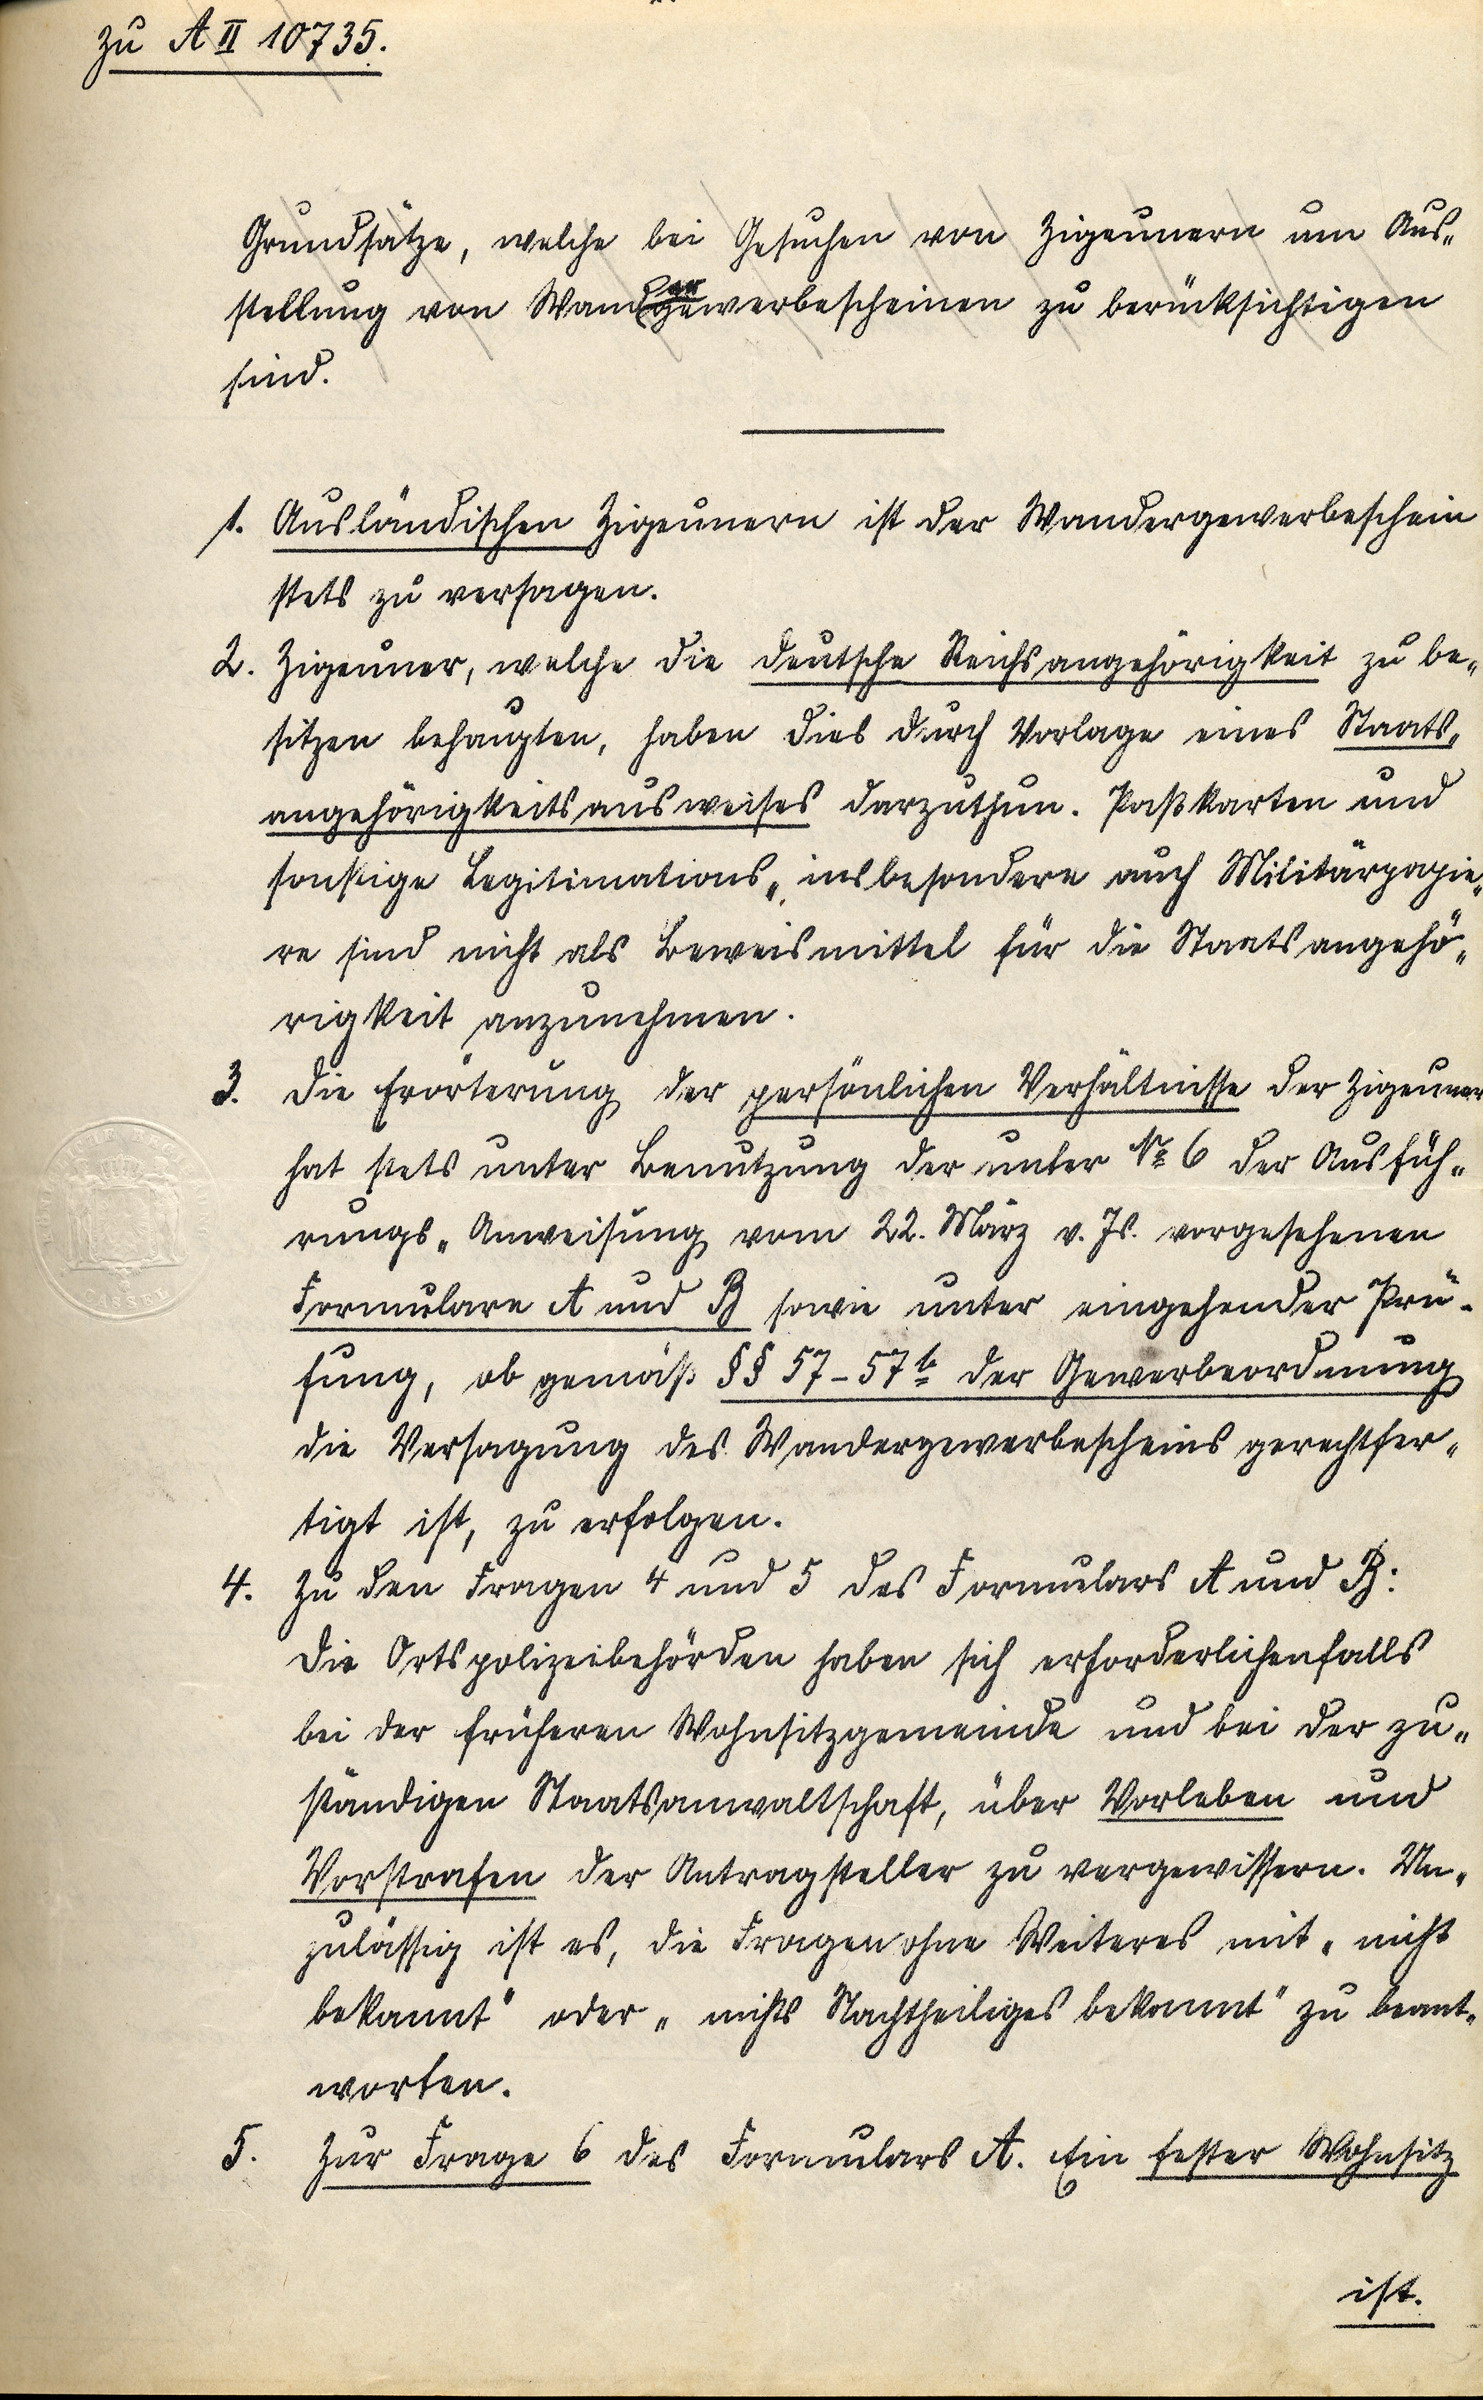 zu A II 10735.
Grundsätze, welche bei Gesuchen von Zigeunern um Aus-
stellung von Wandergewerbescheinen zu berücksichtigen
sind.
1. Ausländischen Zigeunern ist der Wandergewerbeschein
stets zu versagen.
2. Zigeuner, welche die deutsche Reichsangehörigkeit zu be-
sitzen behaupten, haben dies durch Vorlage eines Staats-
angehörigkeitsausweises darzuthun. Paßkarten und
sonstige Legitimations-, insbesondere auch Militärpapie-
re sind nicht als Beweismittel für die Staatsangehö-
rigkeit anzunehmen.
3. Die Erörterung der persönlichen Verhältnisse der Zigeuner
hat stets unter Benutzung der unter № 6 der Ausfüh-
rungs-Anweisung vom 22. März v. Js. vorgesehenen
Formulare A und B sowie unter eingehender Prü-
fung, ob gemäß §§ 57-57b der Gewerbeordnung
die Versagung des Wandergewerbescheins gerechtfer-
tigt ist, zu erfolgen.
4. Zu den Fragen 4 und 5 des Formulars A und B:
Die Ortspolizeibehörden haben sich erforderlichenfalls
bei der früheren Wohnsitzgemeinde und bei der zu-
ständigen Staatsanwaltschaft, über Vorleben und
Vorstrafen der Antragsteller zu vergewissern. Un-
zulässig ist es, die Fragen ohne Weiteres mit „nicht
bekannt" oder „nichts Nachtheiliges bekannt" zu beant-
worten.
5. Zur Frage 6 des Formulars A. Ein fester Wohnsitz
ist.